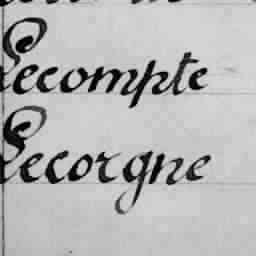 Lecompte
Lecorgne